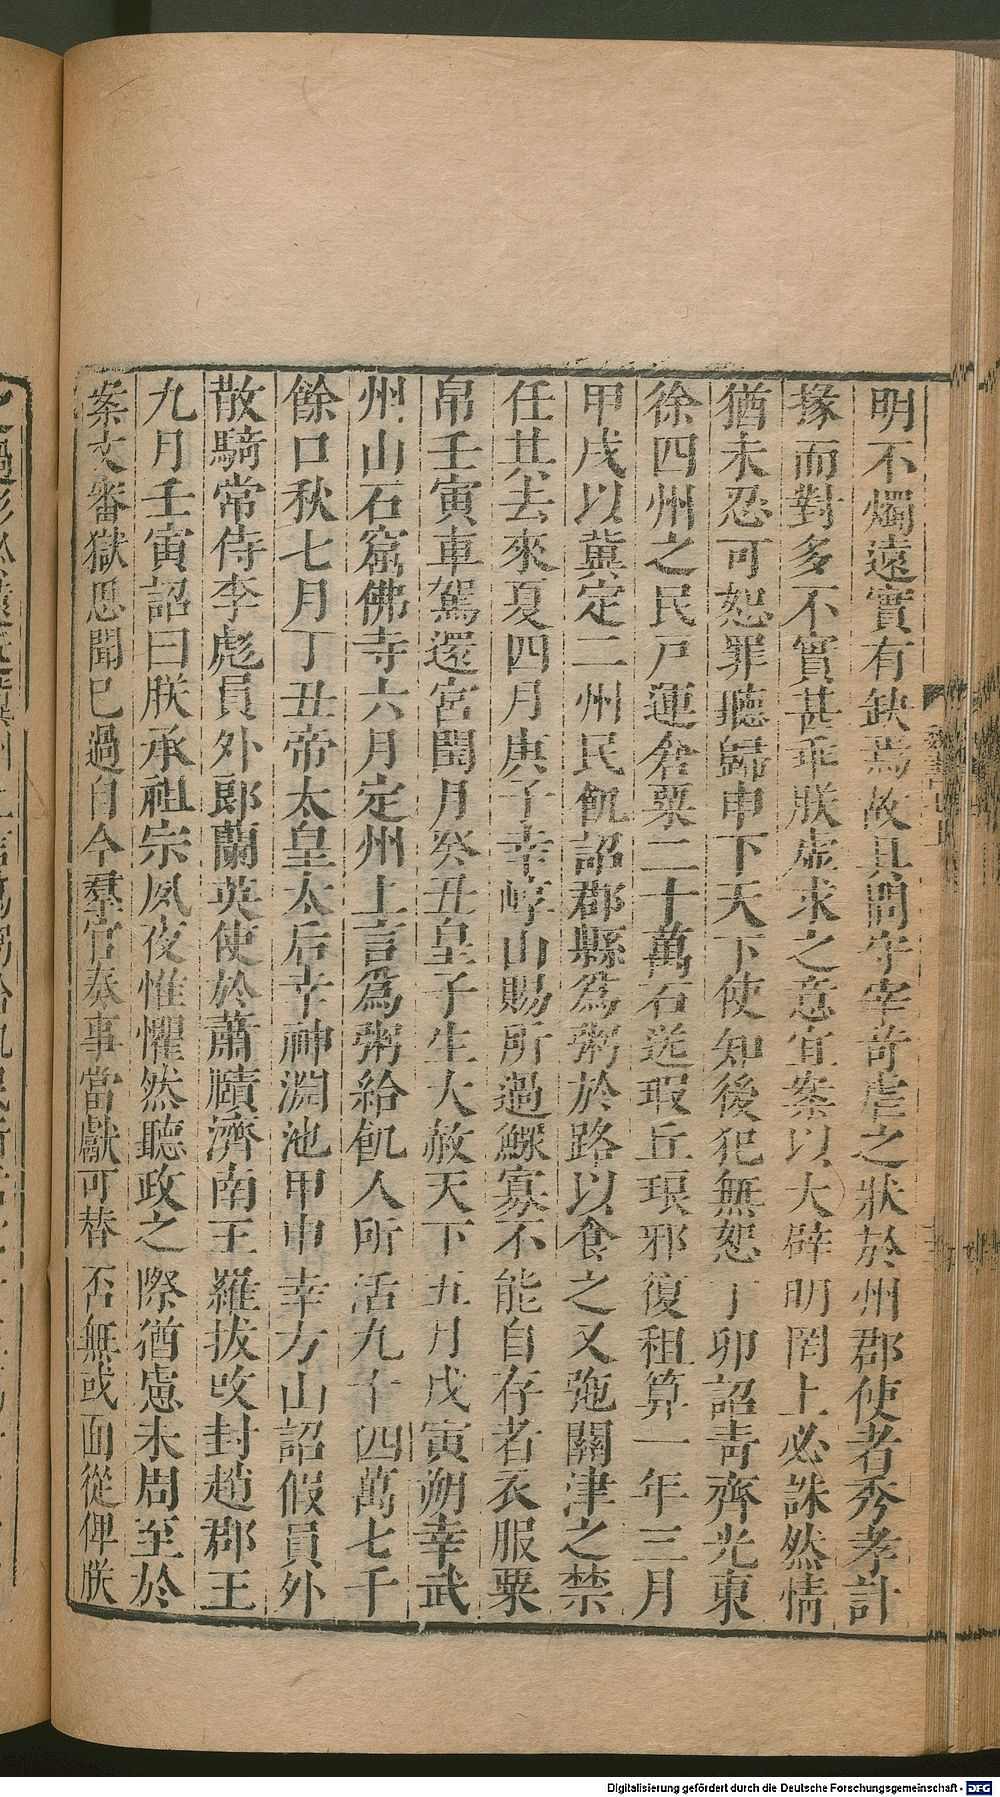 明不燭遠實有缺焉故具問守宰苛虐之狀於州郡使者秀孝計
掾而對多不實甚乖朕虛求之意宜案以大辟明罔上必誅然情
猶未忍可恕罪聽歸申下天下使知後犯無恕丁卯詔靑齊光東
徐四州之民戸運倉粟二十萬石送瑕丘琅邪復租算一年三月
甲戌以冀定二州民飢詔郡縣爲粥於路以食之又弛關津之禁
任其去來夏四月庚子幸崞山賜所過鰥寡不能自存者衣服粟
帛壬寅車駕還宮閏月癸丑皇子生大赦天下五月戊寅朔幸武
州山石窟佛寺六月定州上言爲粥給飢人所活九十四萬七千
餘口秋七月丁丑帝太皇太后幸神淵池甲申幸方山詔假員外
散騎常侍李彪員外郎蘭英使於蕭賾濟南王羅拔攺封趙郡王
九月壬寅詔曰朕承祖宗夙夜惟懼然聽政之際猶慮未周至於
案文審獄思聞已過自今羣官奏事當獻可替否無或面從俾朕
Digitalisierung gefördert durch die Deutsche Forschungsgemeinschaft - DFG